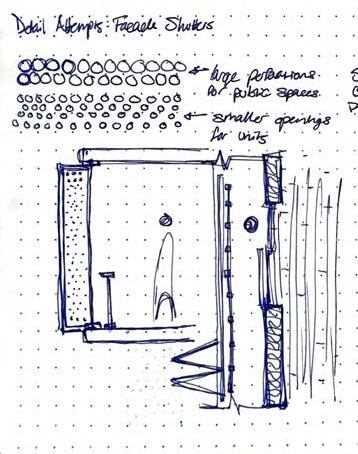 Detail Attempts: Facade Shutters
large perforations
for public spaces.
smaller openings
for units